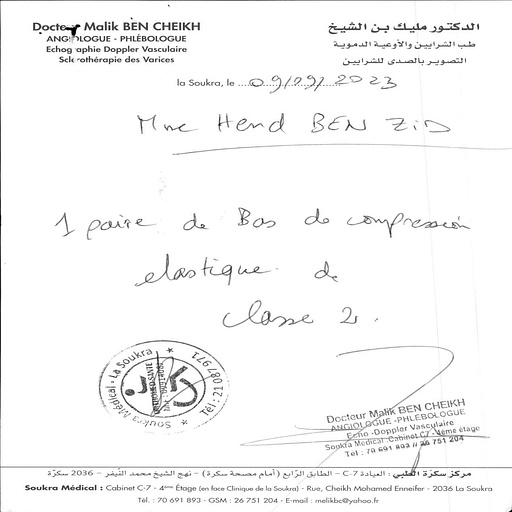 Docteur Malik BEN CHEIKH
ANGIOLOGUE - PHLÉBOLOGUE
Echographie Doppler Vasculaire
Sclérothérapie des Varices
الدكتور مليك بن الشيخ
طب الشرايين والأوعية الدموية
التصوير بالصدى للشرايين
la Soukra, le 09/09/2023
Mme Hend BEN ZID
1 paire de Bas de compression
elastique de
classe 2.
Soukra Médical - La Soukra
Docteur Malik BEN CHEIKH
ANGIOLOGUE - PHLÉBOLOGUE
Echo-Doppler Vasculaire
Soukra Médical Cabinet C7 - 4ème étage
Tel : 70 691 893 // 26 751 204
مركز سكرة الطبي : العيادة C-7 - الطابق الرابع (أمام مصحة سكرة) - نهج الشيخ محمد النيفر - 2036 سكرة
Soukra Médical : Cabinet C-7 - 4ème Étage (en face Clinique de la Soukra) - Rue, Cheikh Mohamed Enneifer - 2036 La Soukra
Tél. : 70 691 893 - GSM : 26 751 204 - E-mail : melikbc@yahoo.fr